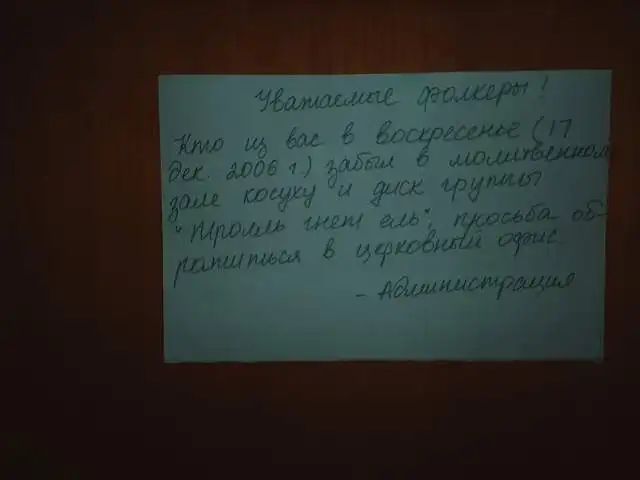 Уважаемые фолкеры!
Кто из вас в воскресенье (17
дек. 2006 г.) забыл в молитвенном
зале косуху и диск группы
"Тролль гнет ель", просьба об-
ратиться в церковный офис.
- Администрация